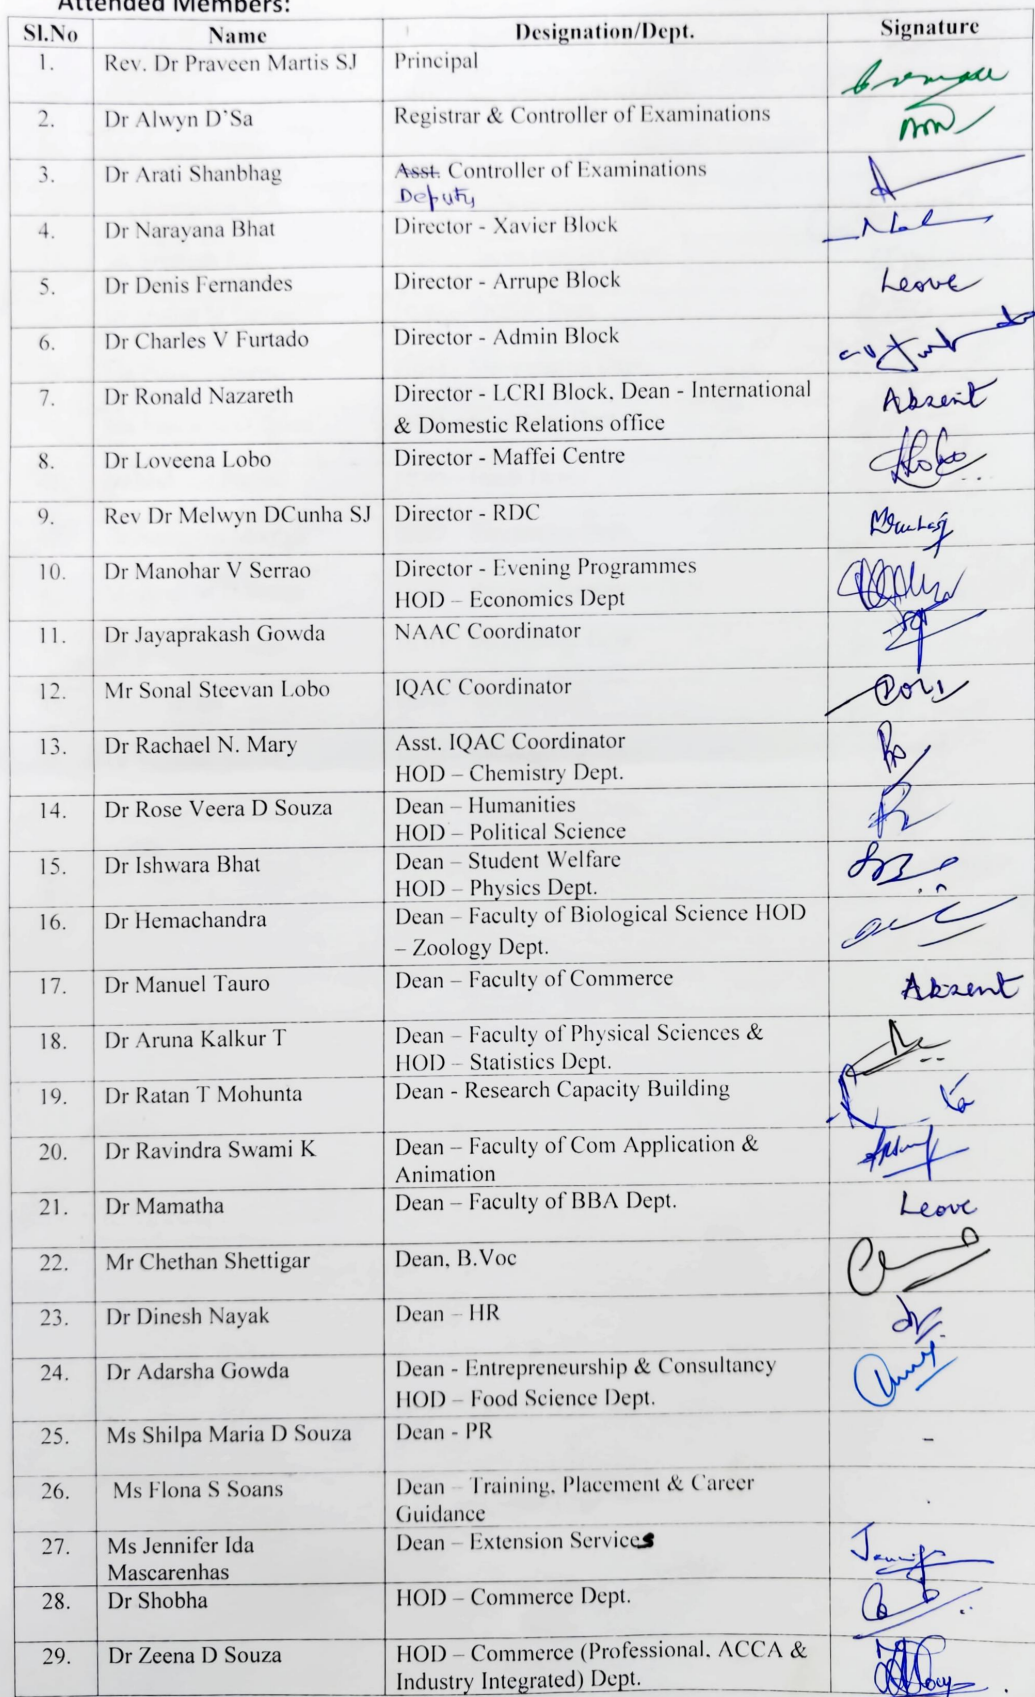 Attended Members:
Sl.No Name Designation/Dept. Signature
1. Rev. Dr Praveen Martis SJ Principal
2. Dr Alwyn D`Sa Registrar & Controller of Examinations
3. Dr Arati Shanbhag Asst. Controller of Examinations
Deputy
4. Dr Narayana Bhat Director - Xavier Block
5. Dr Denis Fernandes Director - Arrupe Block Leave
6. Dr Charles V Furtado Director - Admin Block
7. Dr Ronald Nazareth Director - LCRI Block, Dean - International Absent
& Domestic Relations office
8. Dr Loveena Lobo Director - Maffei Centre
9. Rev Dr Melwyn DCunha SJ Director - RDC
10. Dr Manohar V Serrao Director - Evening Programmes
HOD – Economics Dept
11. Dr Jayaprakash Gowda NAAC Coordinator
12. Mr Sonal Steevan Lobo IQAC Coordinator
13. Dr Rachael N. Mary Asst. IQAC Coordinator
HOD – Chemistry Dept.
14. Dr Rose Veera D Souza Dean – Humanities
HOD – Political Science
15. Dr Ishwara Bhat Dean – Student Welfare
HOD – Physics Dept.
16. Dr Hemachandra Dean – Faculty of Biological Science HOD
– Zoology Dept.
17. Dr Manuel Tauro Dean – Faculty of Commerce Absent
18. Dr Aruna Kalkur T Dean – Faculty of Physical Sciences &
HOD – Statistics Dept.
19. Dr Ratan T Mohunta Dean - Research Capacity Building
20. Dr Ravindra Swami K Dean – Faculty of Com Application &
Animation
21. Dr Mamatha Dean – Faculty of BBA Dept. Leave
22. Mr Chethan Shettigar Dean, B.Voc
23. Dr Dinesh Nayak Dean – HR
24. Dr Adarsha Gowda Dean - Entrepreneurship & Consultancy
HOD – Food Science Dept.
25. Ms Shilpa Maria D Souza Dean - PR -
26. Ms Flona S Soans Dean – Training, Placement & Career
Guidance
27. Ms Jennifer Ida Dean – Extension Services
Mascarenhas
28. Dr Shobha HOD – Commerce Dept.
29. Dr Zeena D Souza HOD – Commerce (Professional, ACCA &
Industry Integrated) Dept.